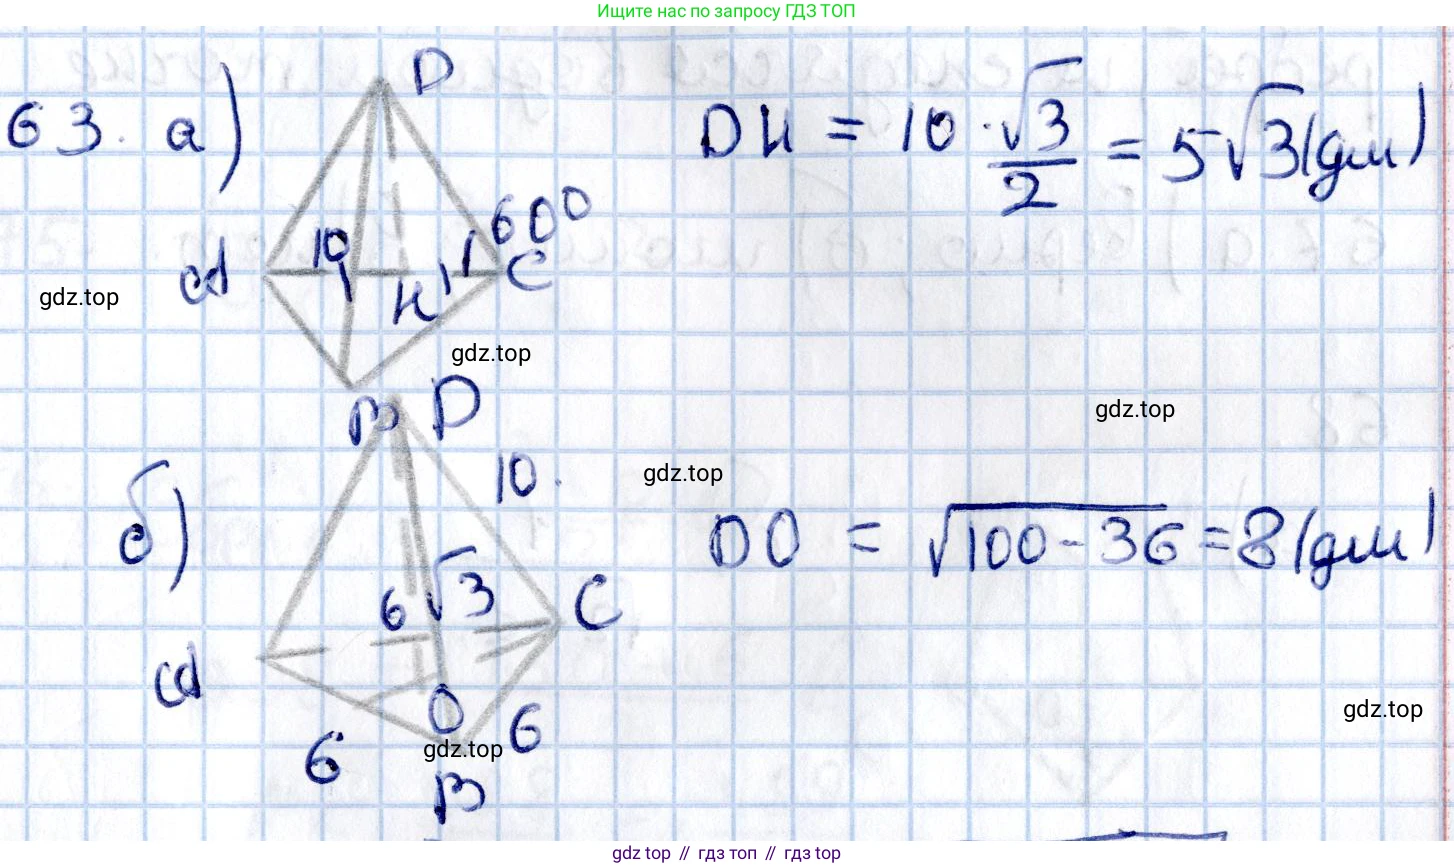 Ищите нас по запросу ГДЗ ТОП
63. а)
D
10
60°
A
H
C
B
DH = 10 · √3/2 = 5√3 (дм)
gdz.top
gdz.top
gdz.top
б)
D
10
gdz.top
6√3
C
A
O
6
6
B
DO = √100-36 = 8 (дм)
gdz.top
gdz.top
gdz top // гдз топ // gdz top